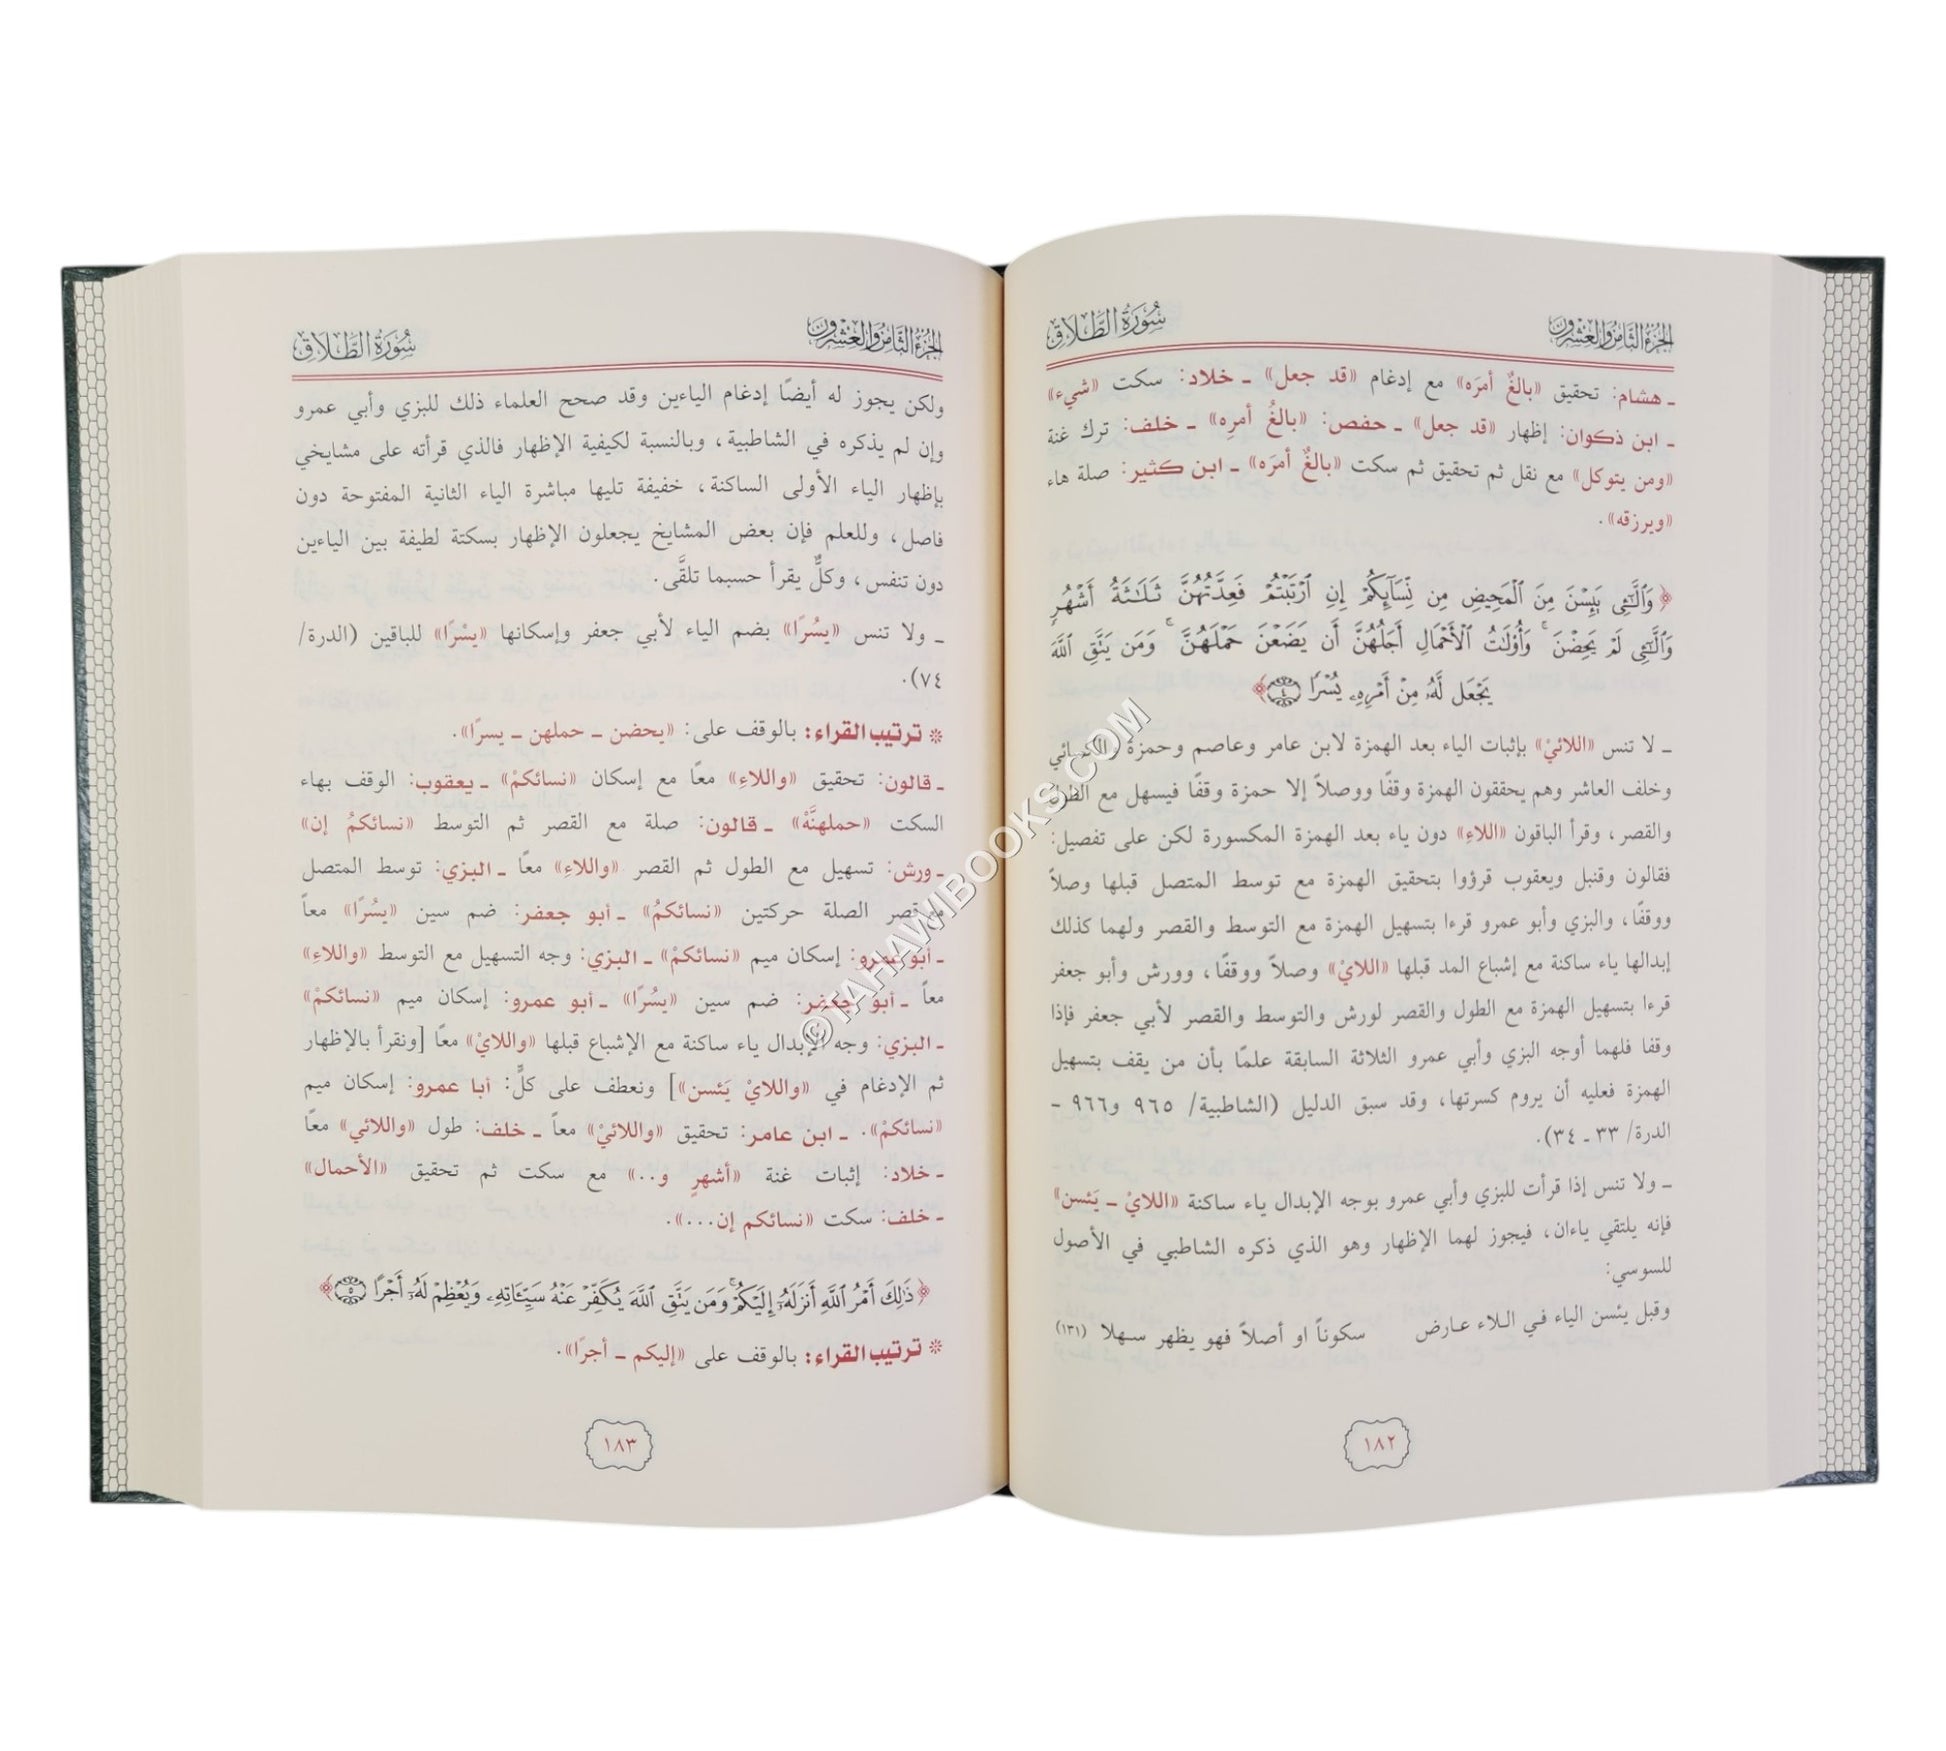 الجزء الثامن والعشرون
سورة الطلاق
ـ هشام: تحقيق «بالغٌ أمرَه» مع إدغام «قد جعل» ـ خلاد: سكت «شيء»
ـ ابن ذكوان: إظهار «قد جعل» ـ حفص: «بالغُ أمرِه» ـ خلف: ترك غنة
«ومن يتوكل» مع نقل ثم تحقيق ثم سكت «بالغٌ أمرَه» ـ ابن كثير: صلة هاء
«ويرزقه».
﴿وَٱلَّٰٓـِٔي يَئِسۡنَ مِنَ ٱلۡمَحِيضِ مِن نِّسَآئِكُمۡ إِنِ ٱرۡتَبۡتُمۡ فَعِدَّتُهُنَّ ثَلَٰثَةُ أَشۡهُرٖ
وَٱلَّٰٓـِٔي لَمۡ يَحِضۡنَۚ وَأُوْلَٰتُ ٱلۡأَحۡمَالِ أَجَلُهُنَّ أَن يَضَعۡنَ حَمۡلَهُنَّۚ وَمَن يَتَّقِ ٱللَّهَ
يَجۡعَل لَّهُۥ مِنۡ أَمۡرِهِۦ يُسۡرٗا ٤﴾
ـ لا تنس «اللائيْ» بإثبات الياء بعد الهمزة لابن عامر وعاصم وحمزة والكسائي
وخلف العاشر وهم يحققون الهمزة وقفًا ووصلاً إلا حمزة وقفًا فيسهل مع الطول
والقصر، وقرأ الباقون «اللاءِ» دون ياء بعد الهمزة المكسورة لكن على تفصيل:
فقالون وقنبل ويعقوب قرؤوا بتحقيق الهمزة مع توسط المتصل قبلها وصلاً
ووقفًا، والبزي وأبو عمرو قرءا بتسهيل الهمزة مع التوسط والقصر ولهما كذلك
إبدالها ياء ساكنة مع إشباع المد قبلها «اللايْ» وصلاً ووقفًا، وورش وأبو جعفر
قرءا بتسهيل الهمزة مع الطول والقصر لورش والتوسط والقصر لأبي جعفر فإذا
وقفا فلهما أوجه البزي وأبي عمرو الثلاثة السابقة علمًا بأن من يقف بتسهيل
الهمزة فعليه أن يروم كسرتها، وقد سبق الدليل (الشاطبية/ ٩٦٥ و٩٦٦ -
الدرة/ ٣٣ ـ ٣٤).
ـ ولا تنس إذا قرأت للبزي وأبي عمرو بوجه الإبدال ياء ساكنة «اللايْ ـ يَئسن»
فإنه يلتقي ياءان، فيجوز لهما الإظهار وهو الذي ذكره الشاطبي في الأصول
للسوسي:
وقبل يئسن الياء في اللاء عارض سكوناً او أصلاً فهو يظهر سهلا (١٣١)
١٨٢
الجزء الثامن والعشرون
سورة الطلاق
ولكن يجوز له أيضًا إدغام الياءين وقد صحح العلماء ذلك للبزي وأبي عمرو
وإن لم يذكره في الشاطبية، وبالنسبة لكيفية الإظهار فالذي قرأته على مشايخي
بإظهار الياء الأولى الساكنة، خفيفة تليها مباشرة الياء الثانية المفتوحة دون
فاصل، وللعلم فإن بعض المشايخ يجعلون الإظهار بسكتة لطيفة بين الياءين
دون تنفس، وكلٌّ يقرأ حسبما تلقَّى.
ـ ولا تنس «يسُرًا» بضم الياء لأبي جعفر وإسكانها «يسْرًا» للباقين (الدرة/
٧٤).
* ترتيب القراء: بالوقف على: «يحضن ـ حملهن ـ يسرًا».
ـ قالون: تحقيق «واللاءِ» معًا مع إسكان «نسائكمْ» ـ يعقوب: الوقف بهاء
السكت «حملهنَّهْ» ـ قالون: صلة مع القصر ثم التوسط «نسائكمُ إن»
ـ ورش: تسهيل مع الطول ثم القصر «واللاءِ» معًا ـ البزي: توسط المتصل
مع قصر الصلة حركتين «نسائكمُ» ـ أبو جعفر: ضم سين «يسُرًا» معاً
ـ أبو عمرو: إسكان ميم «نسائكمْ» ـ البزي: وجه التسهيل مع التوسط «واللاءِ»
معاً ـ أبو جعفر: ضم سين «يسُرًا» ـ أبو عمرو: إسكان ميم «نسائكمْ»
ـ البزي: وجه الإبدال ياء ساكنة مع الإشباع قبلها «واللايْ» معًا [ونقرأ بالإظهار
ثم الإدغام في «واللايْ يَئسن»] ونعطف على كلٍّ: أبا عمرو: إسكان ميم
«نسائكمْ». ـ ابن عامر: تحقيق «واللائيْ» معاً ـ خلف: طول «واللائي» معًا
ـ خلاد: إثبات غنة «أشهرٍ و..» مع سكت ثم تحقيق «الأحمال»
ـ خلف: سكت «نسائكم إن...».
﴿ذَٰلِكَ أَمۡرُ ٱللَّهِ أَنزَلَهُۥٓ إِلَيۡكُمۡۚ وَمَن يَتَّقِ ٱللَّهَ يُكَفِّرۡ عَنۡهُ سَيِّـَٔاتِهِۦ وَيُعۡظِمۡ لَهُۥٓ أَجۡرًا ٥﴾
* ترتيب القراء: بالوقف على «إليكم ـ أجرًا».
١٨٣
©TAHAWIBOOKS.COM